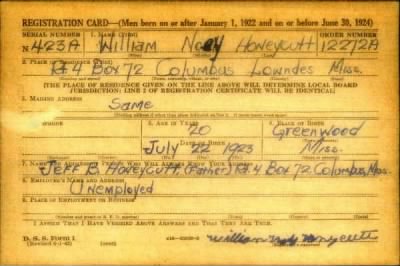 REGISTRATION CARD—(Men born on or after January 1, 1922 and on or before June 30, 1924)
SERIAL NUMBER 1. NAME (Print) ORDER NUMBER
N423A William Noey Honeycutt 12272A
2. PLACE OF RESIDENCE (Print)
Rt 4 Box 72 Columbus Lowndes Miss.
(THE PLACE OF RESIDENCE GIVEN ON THE LINE ABOVE WILL DETERMINE LOCAL BOARD
JURISDICTION; LINE 2 OF REGISTRATION CERTIFICATE WILL BE IDENTICAL)
3. MAILING ADDRESS
Same
5. AGE IN YEARS 6. PLACE OF BIRTH
20 Greenwood
DATE OF BIRTH
July 22 1923 Miss.
7. NAME AND ADDRESS OF PERSON WHO WILL ALWAYS KNOW YOUR ADDRESS
Jeff B. Honeycutt (Father) Rt 4 Box 72 Columbus, Miss.
8. EMPLOYER'S NAME AND ADDRESS
Unemployed
9. PLACE OF EMPLOYMENT OR BUSINESS
I AFFIRM THAT I HAVE VERIFIED ABOVE ANSWERS AND THAT THEY ARE TRUE.
D. S. S. Form 1